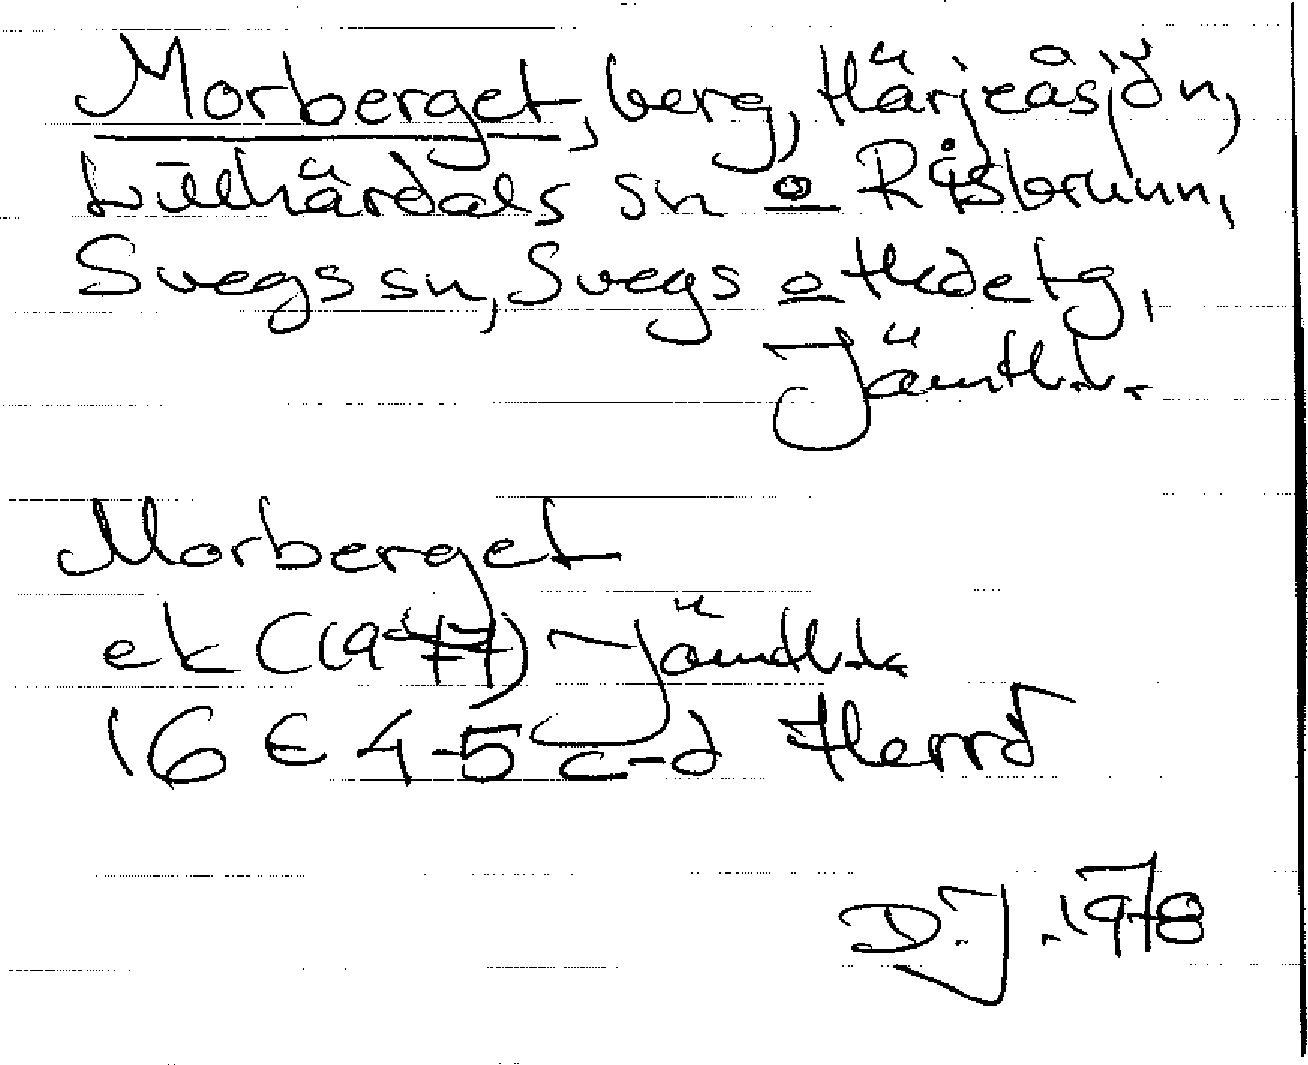 Morberget, berg, Härjeåsjön,
Lillhärdals sn o Råsbrunn,
Svegs sn, Svegs o Hedetg,
Jämtl.l.
Morberget
ek (1977) Jämtl.k
16 E 4-5 c-d Herrö
D.J. 1978